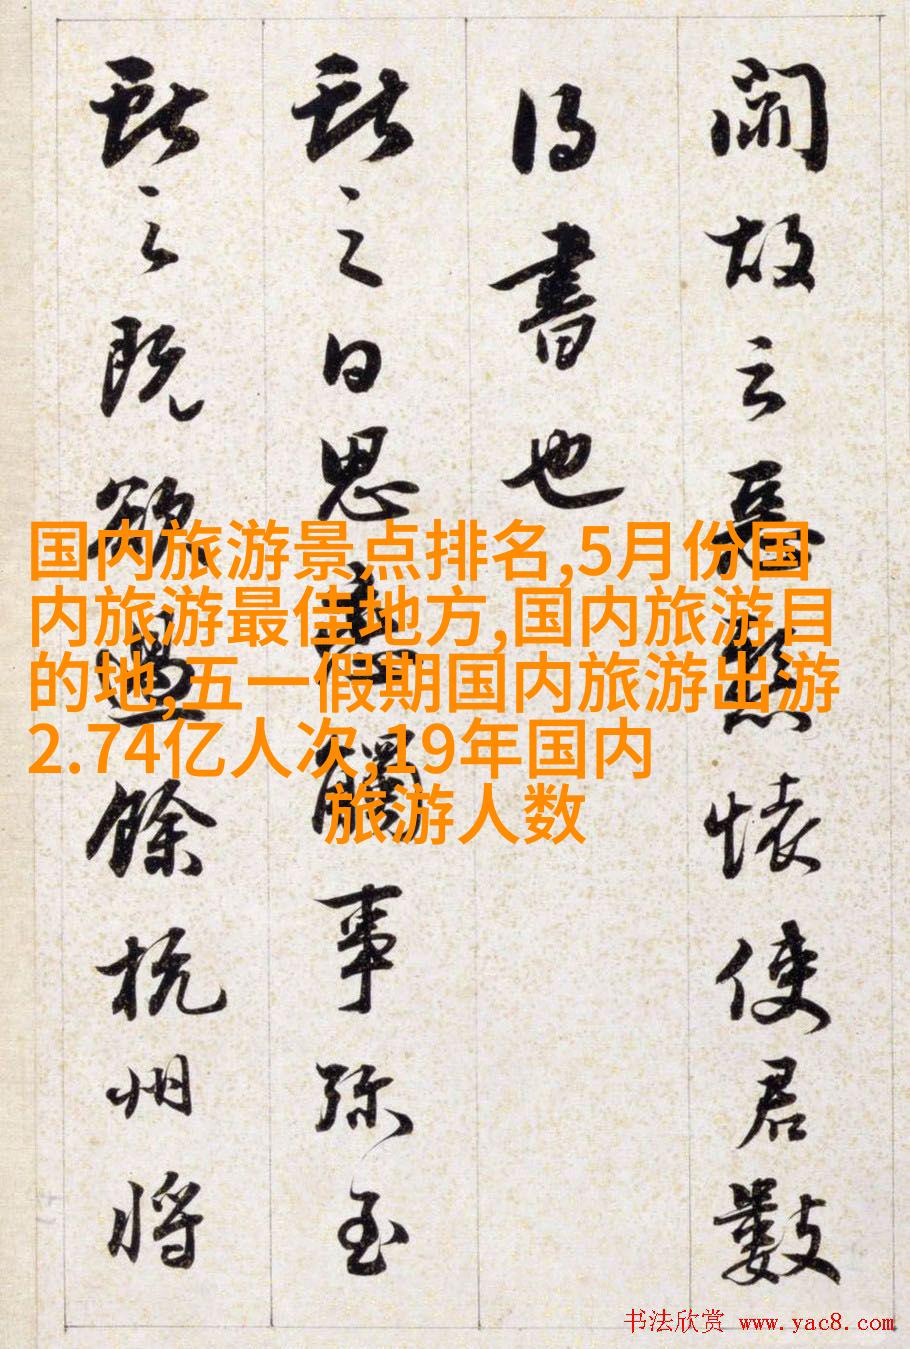 聞故云惡懸懷使君數
得書也
獻之日思戀觸事弥至
獻之既欲過餘杭州將
国内旅游景点排名,5月份国
内旅游最佳地方,国内旅游目
的地,五一假期国内旅游出游
2.74亿人次,19年国内
旅游人数
书法欣赏 www.yac8.com